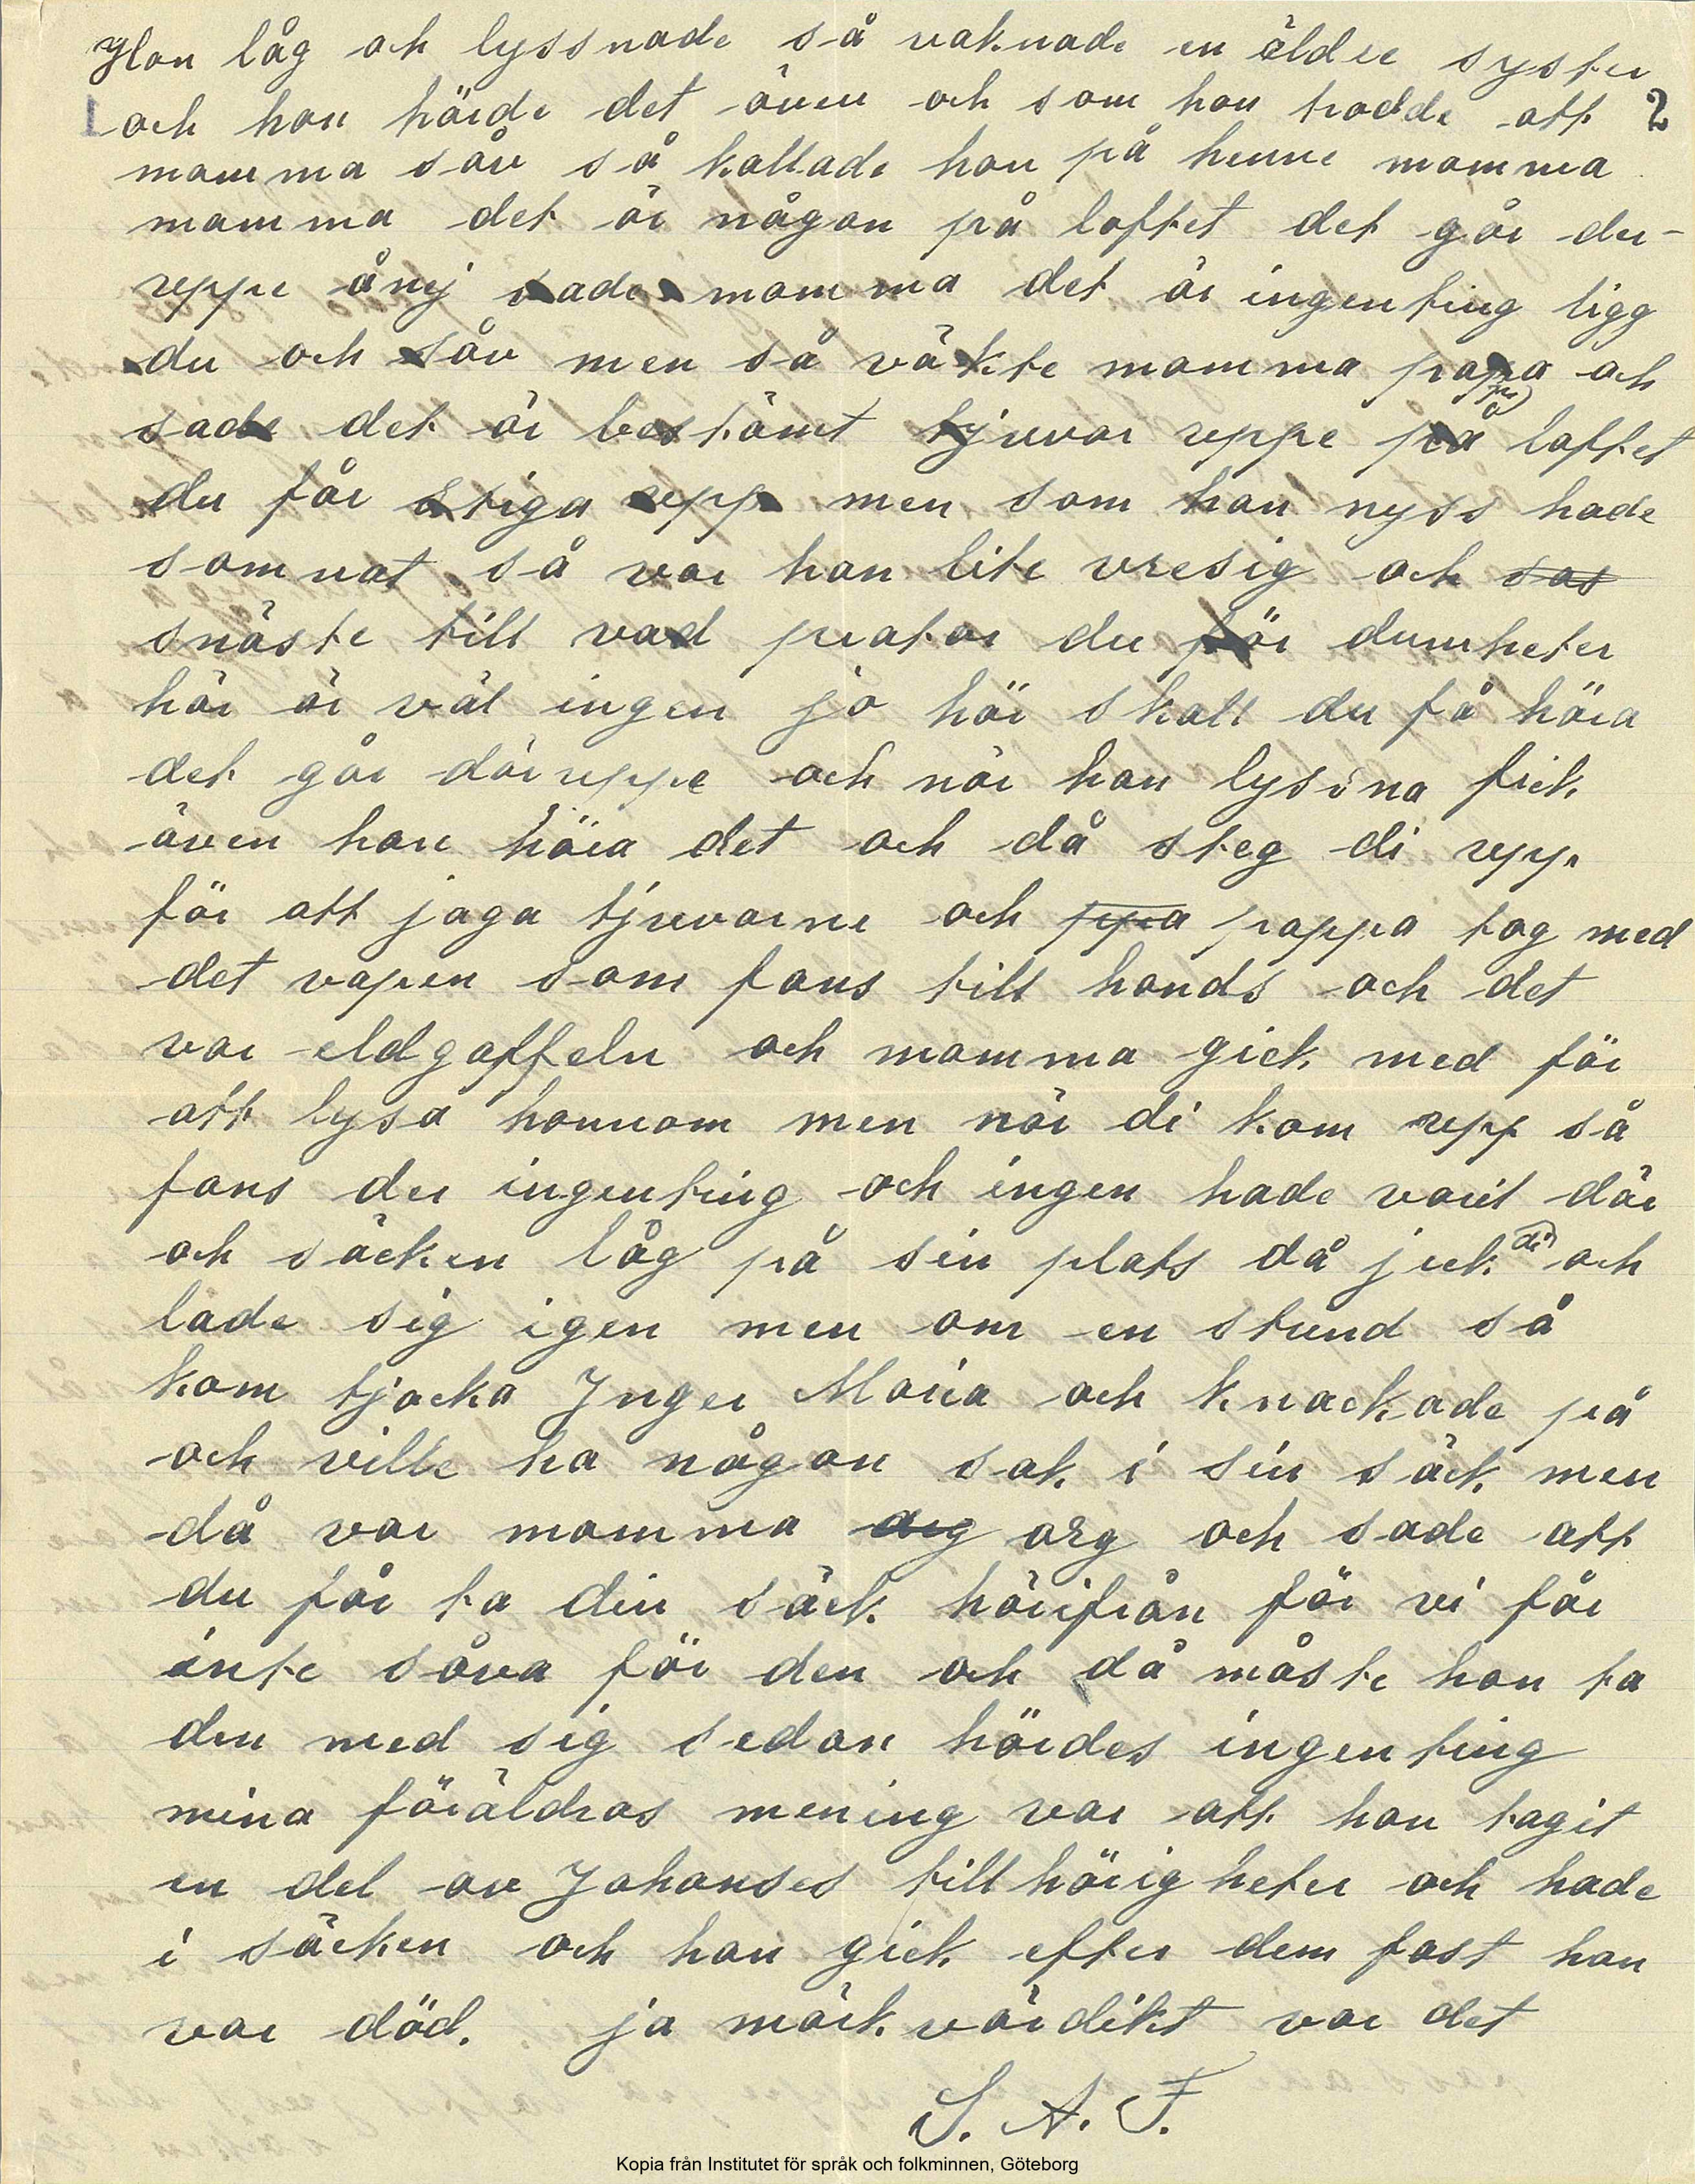 Hon låg och lyssnade så vaknade en äldre syster
och hon hörde det även och som hon trodde att 2
mamma såv så kallade hon på henne mamma
mamma det är någon på loftet det går der-
uppe ånej sade mamma det är ingenting ligg
du och såv men så väkte mamma papa och
sade det är bestämt tjuvar uppe på loftet
du får stiga upp men som han nyss hade
somnat så var han lite vresig och sas
snäste till vad pratar du för dumheter
här är väl ingen jo hör skall du få höra
det går däruppe och när han lyssna fick
även han höra det och då steg di upp
för att jaga tjuvarne och ppa pappa tog med
det vapen som fans till hands och det
var eldgaffeln och mamma gick med för
att lysa honnom men när di kom upp så
fans der ingenting och ingen hade varit där
och säcken låg på sin plats då jick di och
lade sig igen men om en stund så
kom tjocka Inger Maria och knackade på
och ville ha någon sak i sin säck men
då var mamma arg org och sade att
du får ta din säck härifrån för vi får
inte såva för den och då måste hon ta
den med sig sedan hördes ingenting
mina föräldras mening var att hon tagit
en del av Johanses tillhörigheter och hade
i säcken och han gick efter dem fast han
var död. ja märkvärdikt var det
S. A. F.
Kopia från Institutet för språk och folkminnen, Göteborg